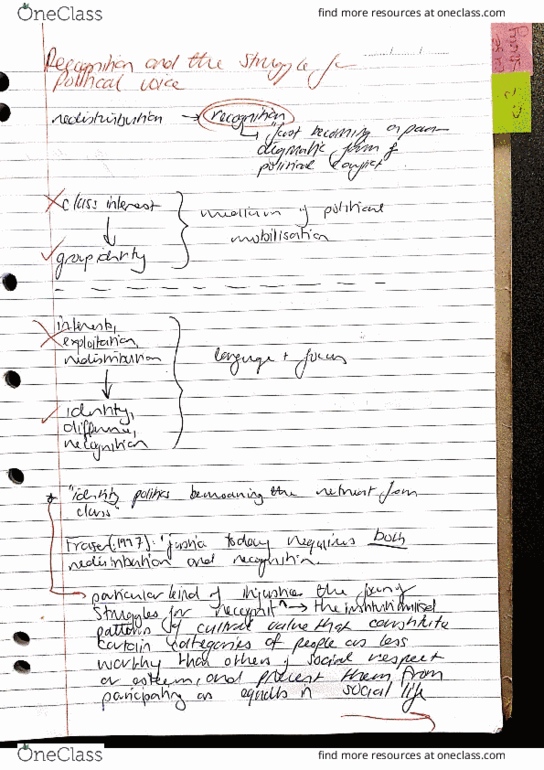 OneClass
find more resources at oneclass.com
Recognition and the struggle for
political voice
redistribution → recognition
↳ fast becoming a para-
digmatic form of
political conflict
class interest
↓
group identity
medium of political
mobilisation
interests,
exploitation,
redistribution
↓
identity,
difference,
recognition
language + focus
"identity politics bemoaning the retreat from
class"
Fraser (1997): "justice today requires both
redistribution and recognition.
particular kind of injustice the
struggles for "recognit" → the institutionalised
patterns of cultural value that constitute
certain categories of people as less
worthy than others of social respect
or esteem, and prevent them from
participating as equals in social life
OneClass
find more resources at oneclass.com